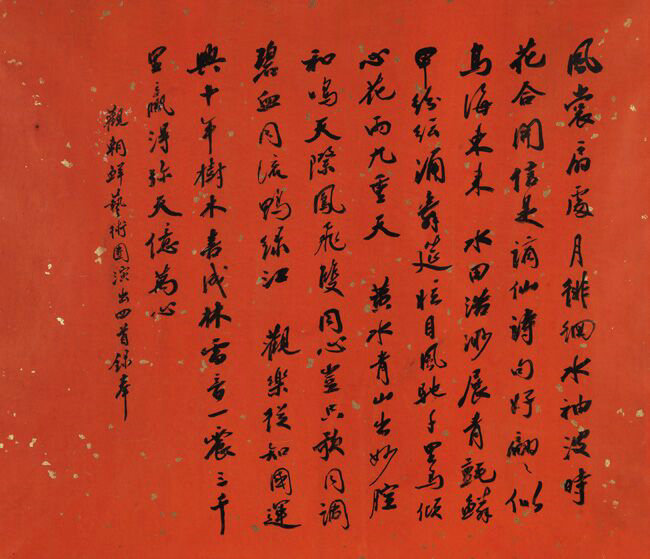 風裳扇處月徘徊水袖波時
花合開信是謫仙詩句好翩〻似
鳥海東來 水田浩渺展青氈鱗
甲紛紜涌壽筵怔目風馳千里馬傾
心花雨九重天 黃水青山出妙腔
和鳴天際鳳飛雙同心豈只歌同調
碧血同流鴨綠江 觀樂從知國運
興十年樹木喜成林雷音一震三千
里贏得彌天億萬心
觀朝鮮藝術團演出四首錄奉